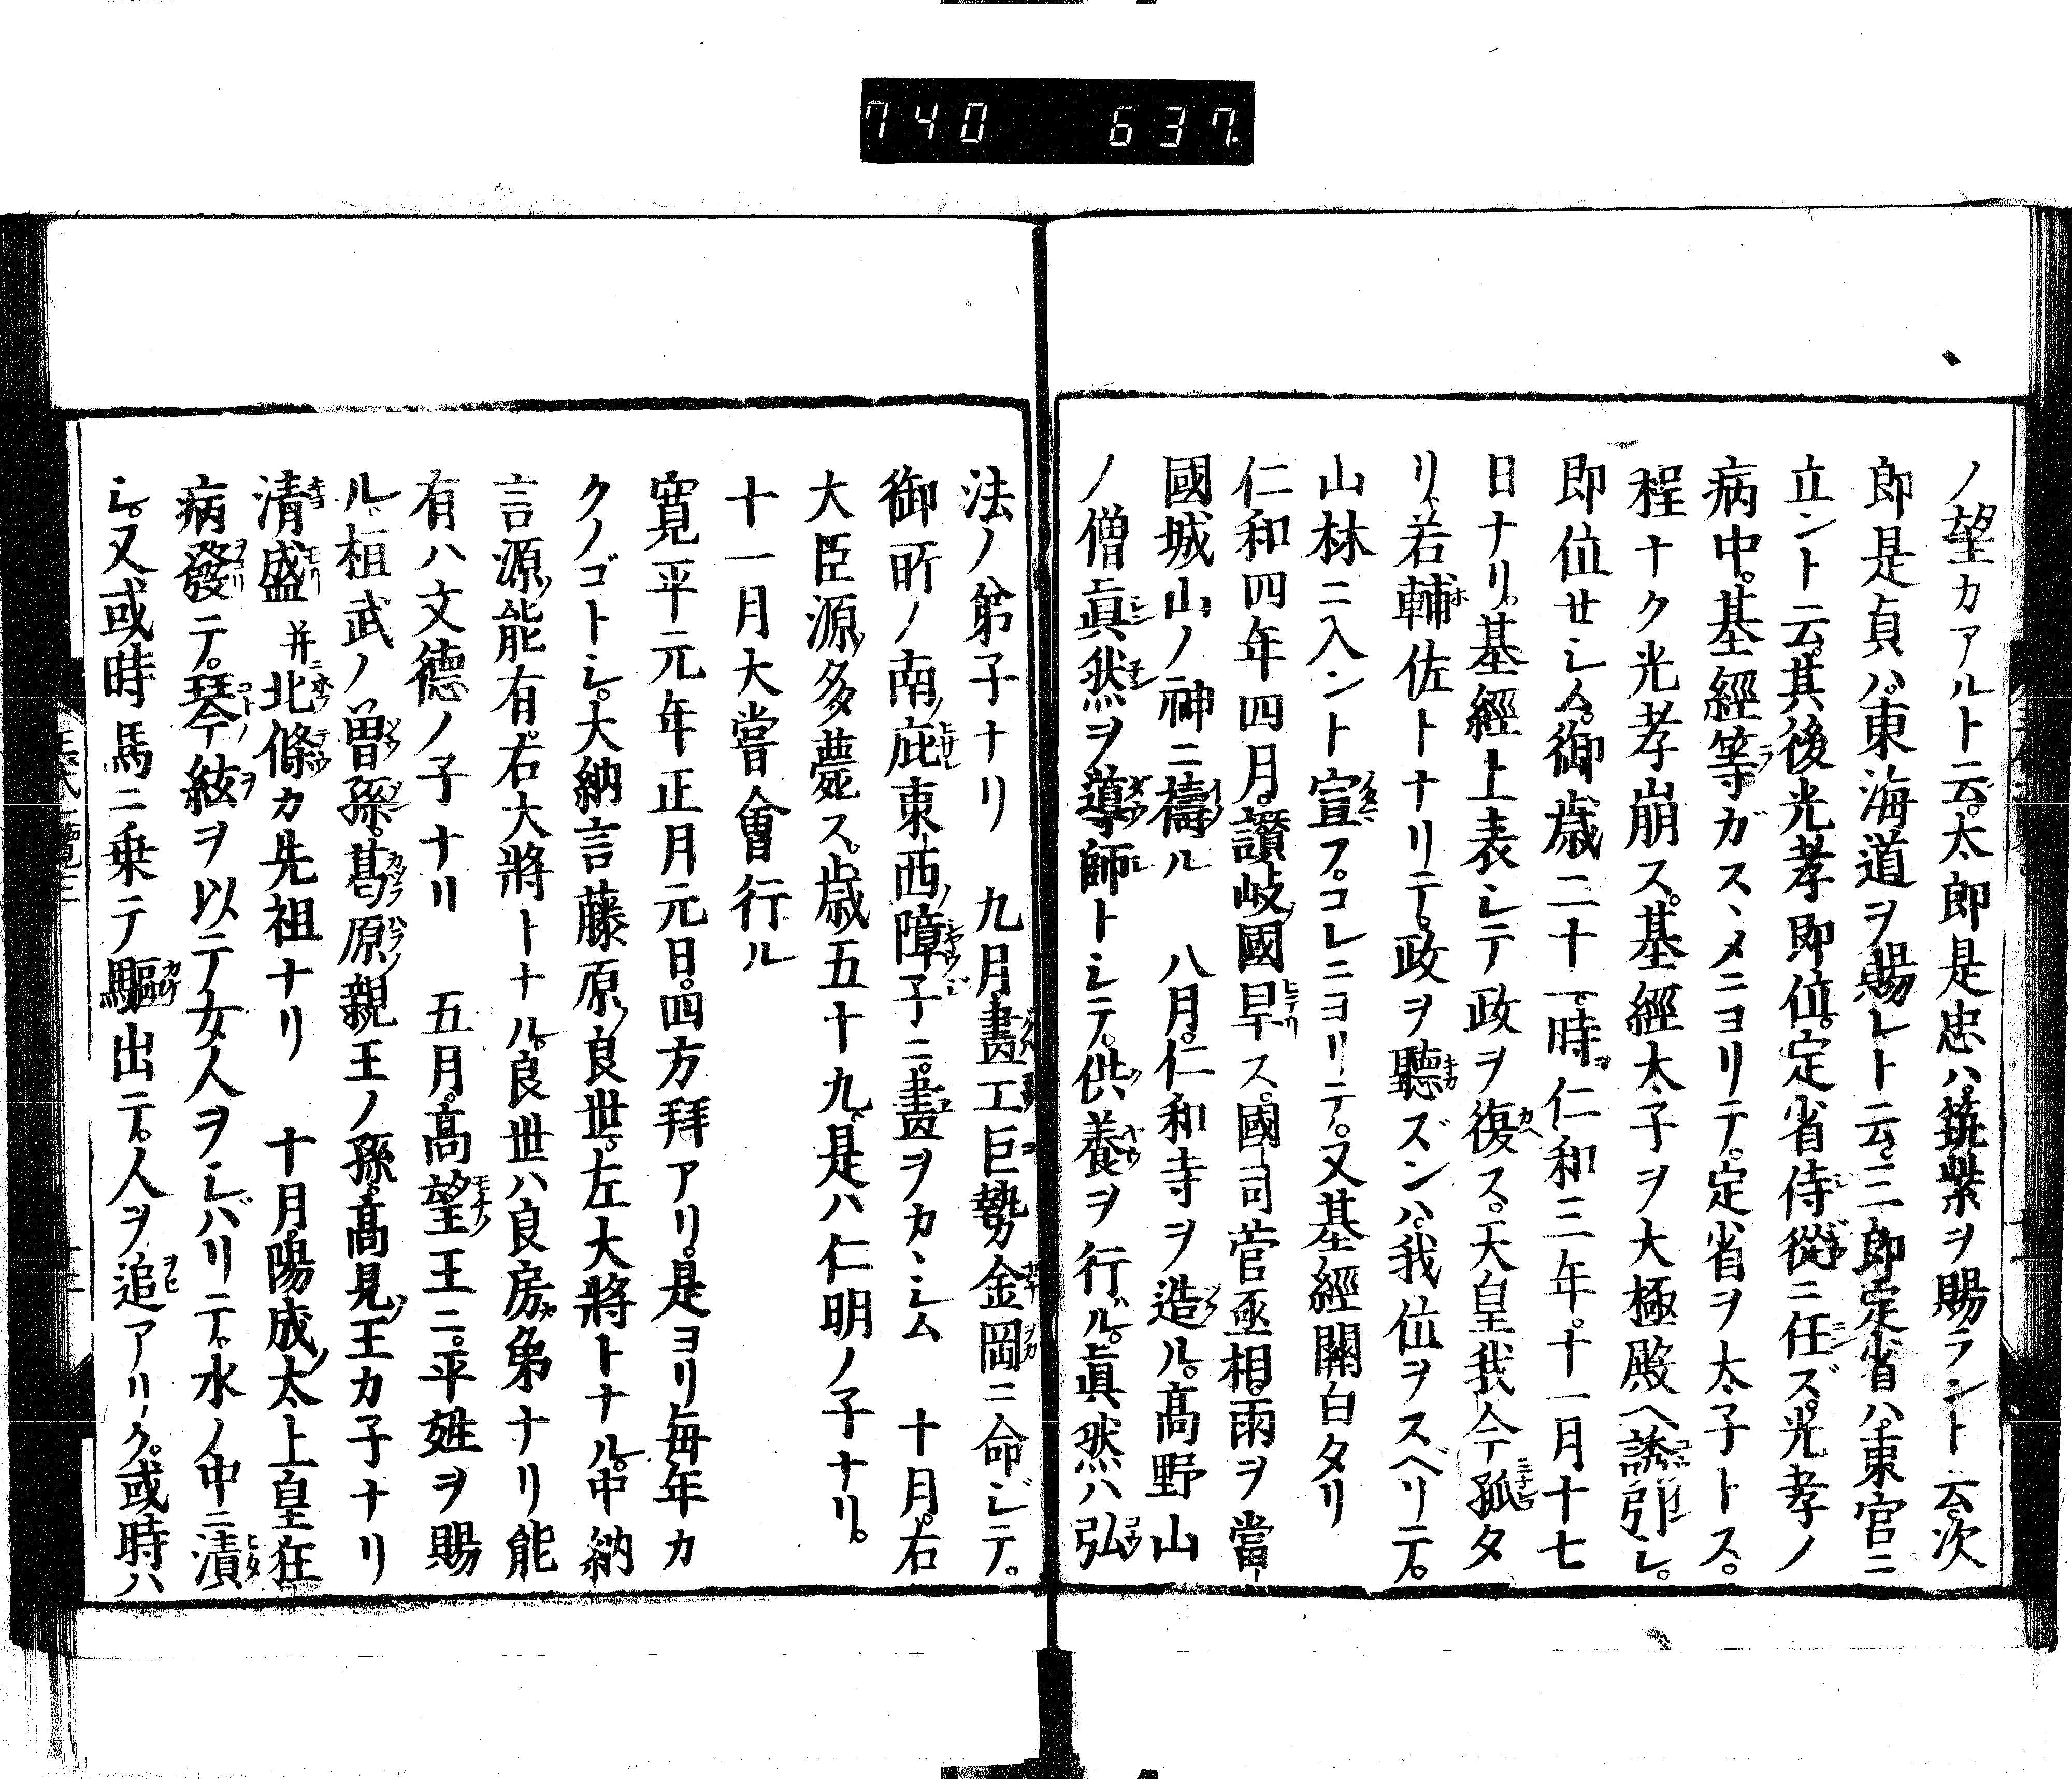 740 637
ノ望カアルト云。太郎是忠ハ。筑紫ヲ賜ラント云。次
郎是貞ハ。東海道ヲ賜レト云。三郎定省ハ。東宮ニ
立ント云。其後光孝即位。定省侍從ニ任ズ。光孝ノ
病中。基經等ガスヽメニヨリテ。定省ヲ太子トス。
程ナク光孝崩ス。基經太子ヲ大極殿ヘ誘引シ。
即位セシム。御歳二十一。時仁和三年。十一月十七
日ナリ。基經上表シテ政ヲ復ス。天皇我今孤タ
リ。若輔佐トナリテ。政ヲ聽ズンハ。我位ヲスベリテ。
山林ニ入ント宣フ。コレニヨリテ。又基經關白タリ
仁和四年四月。讃岐國旱ス。國司菅亟相。雨ヲ當
國城山ノ神ニ禱ル 八月。仁和寺ヲ造ル。髙野山
ノ僧眞然ヲ導師トシテ。供養ヲ行ル。眞然ハ弘
法ノ弟子ナリ 九月。畫工巨勢金岡ニ命ジテ。
御所ノ南庇東西ノ障子ニ。畫ヲカヽシム 十月。右
大臣源多薨ス。歳五十九。是ハ仁明ノ子ナリ。
十一月大嘗會行ル
寛平元年正月元日。四方拜アリ。是ヨリ毎年カ
クノゴトシ。大納言藤原良世。左大將トナル。中納
言源能有。右大將トナル。良世ハ良房カ弟ナリ能
有ハ文德ノ子ナリ 五月。髙望王ニ。平姓ヲ賜
ル。桓武ノ曽孫。葛原親王ノ孫。髙見王カ子ナリ
清盛并北條カ先祖ナリ 十月。陽成太上皇狂
病發テ。琴絃ヲ以テ女人ヲシバリテ。水ノ中ニ漬
シ。又或時馬ニ乗テ驅出テ。人ヲ追アリク。或時ハ